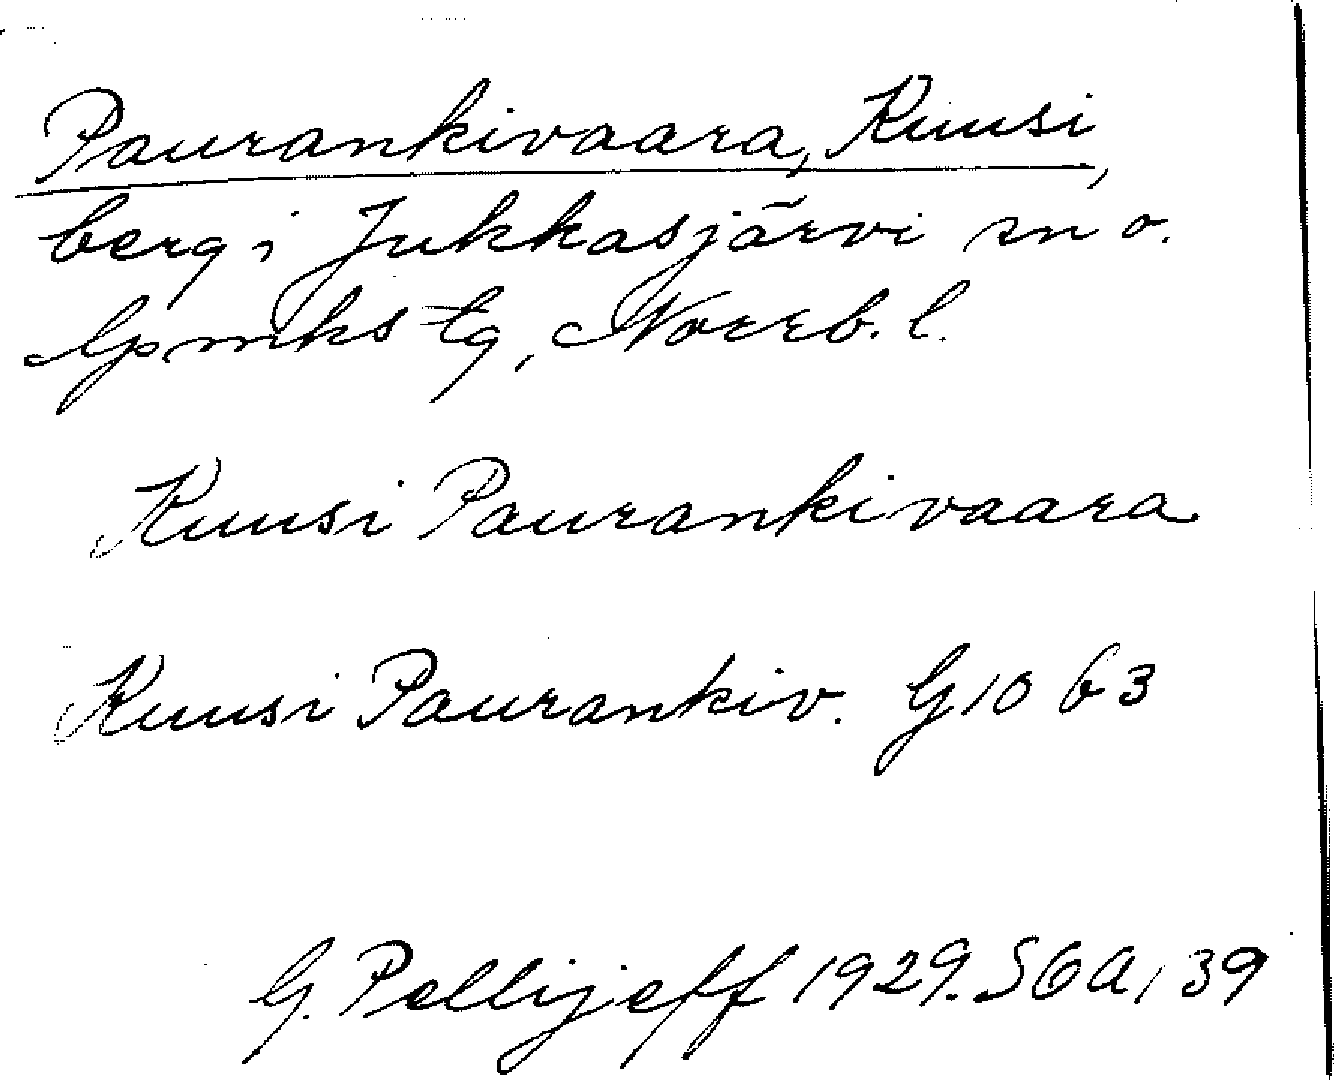 Paurankivaara, Kuusi,
berg i Jukkasjärvi sn o.
lpmks tg, Norrb. l.
Kuusi Paurankivaara
Kuusi Paurankiv. G10 b3
G. Pellijeff 1929. SGA, 39